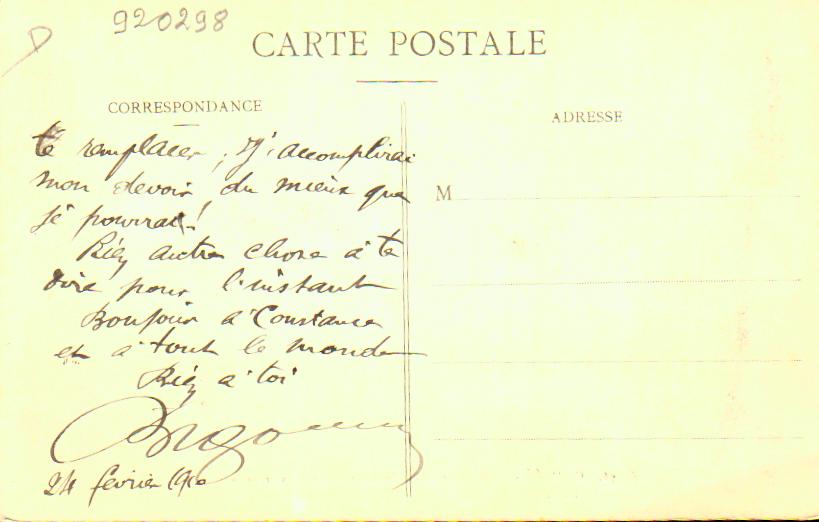 920298
CARTE POSTALE
CORRESPONDANCE
ADRESSE
te remplacer, j'accomplirai
mon devoir, du mieux que
je pourrai!
Rien autre chose à te
dire pour l'instant
Bonjour à Constance
et à tout le monde
Bien à toi
M
24 février 1910